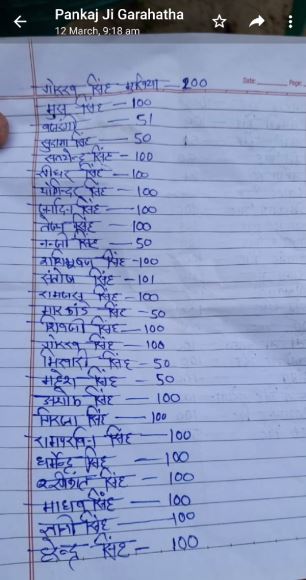 Pankaj Ji Garahatha
12 March, 9:18 am
Date: Page:
गोरख सिंह मुखिया — 200
मुन्नु सिंह — 100
— 51
सुदामा सिंह — 50
सत्येन्द्र सिंह — 100
श्रीधर सिंह — 100
योगिन्दर सिंह — 100
सिंह — 100
सिंह — 100
नन्जी सिंह — 50
शशिभूषण सिंह — 100
संतोष सिंह — 101
रामजस सिंह — 100
मारकंडे सिंह — 50
शिवजी सिंह — 100
गोरख सिंह — 100
भिखारी सिंह — 50
महेश सिंह — 50
अशोक सिंह — 100
सिंह — 100
सिंह — 100
धर्मेन्द्र सिंह — 100
सिंह — 100
माधव सिंह — 100
सिंह — 100
सिंह — 100